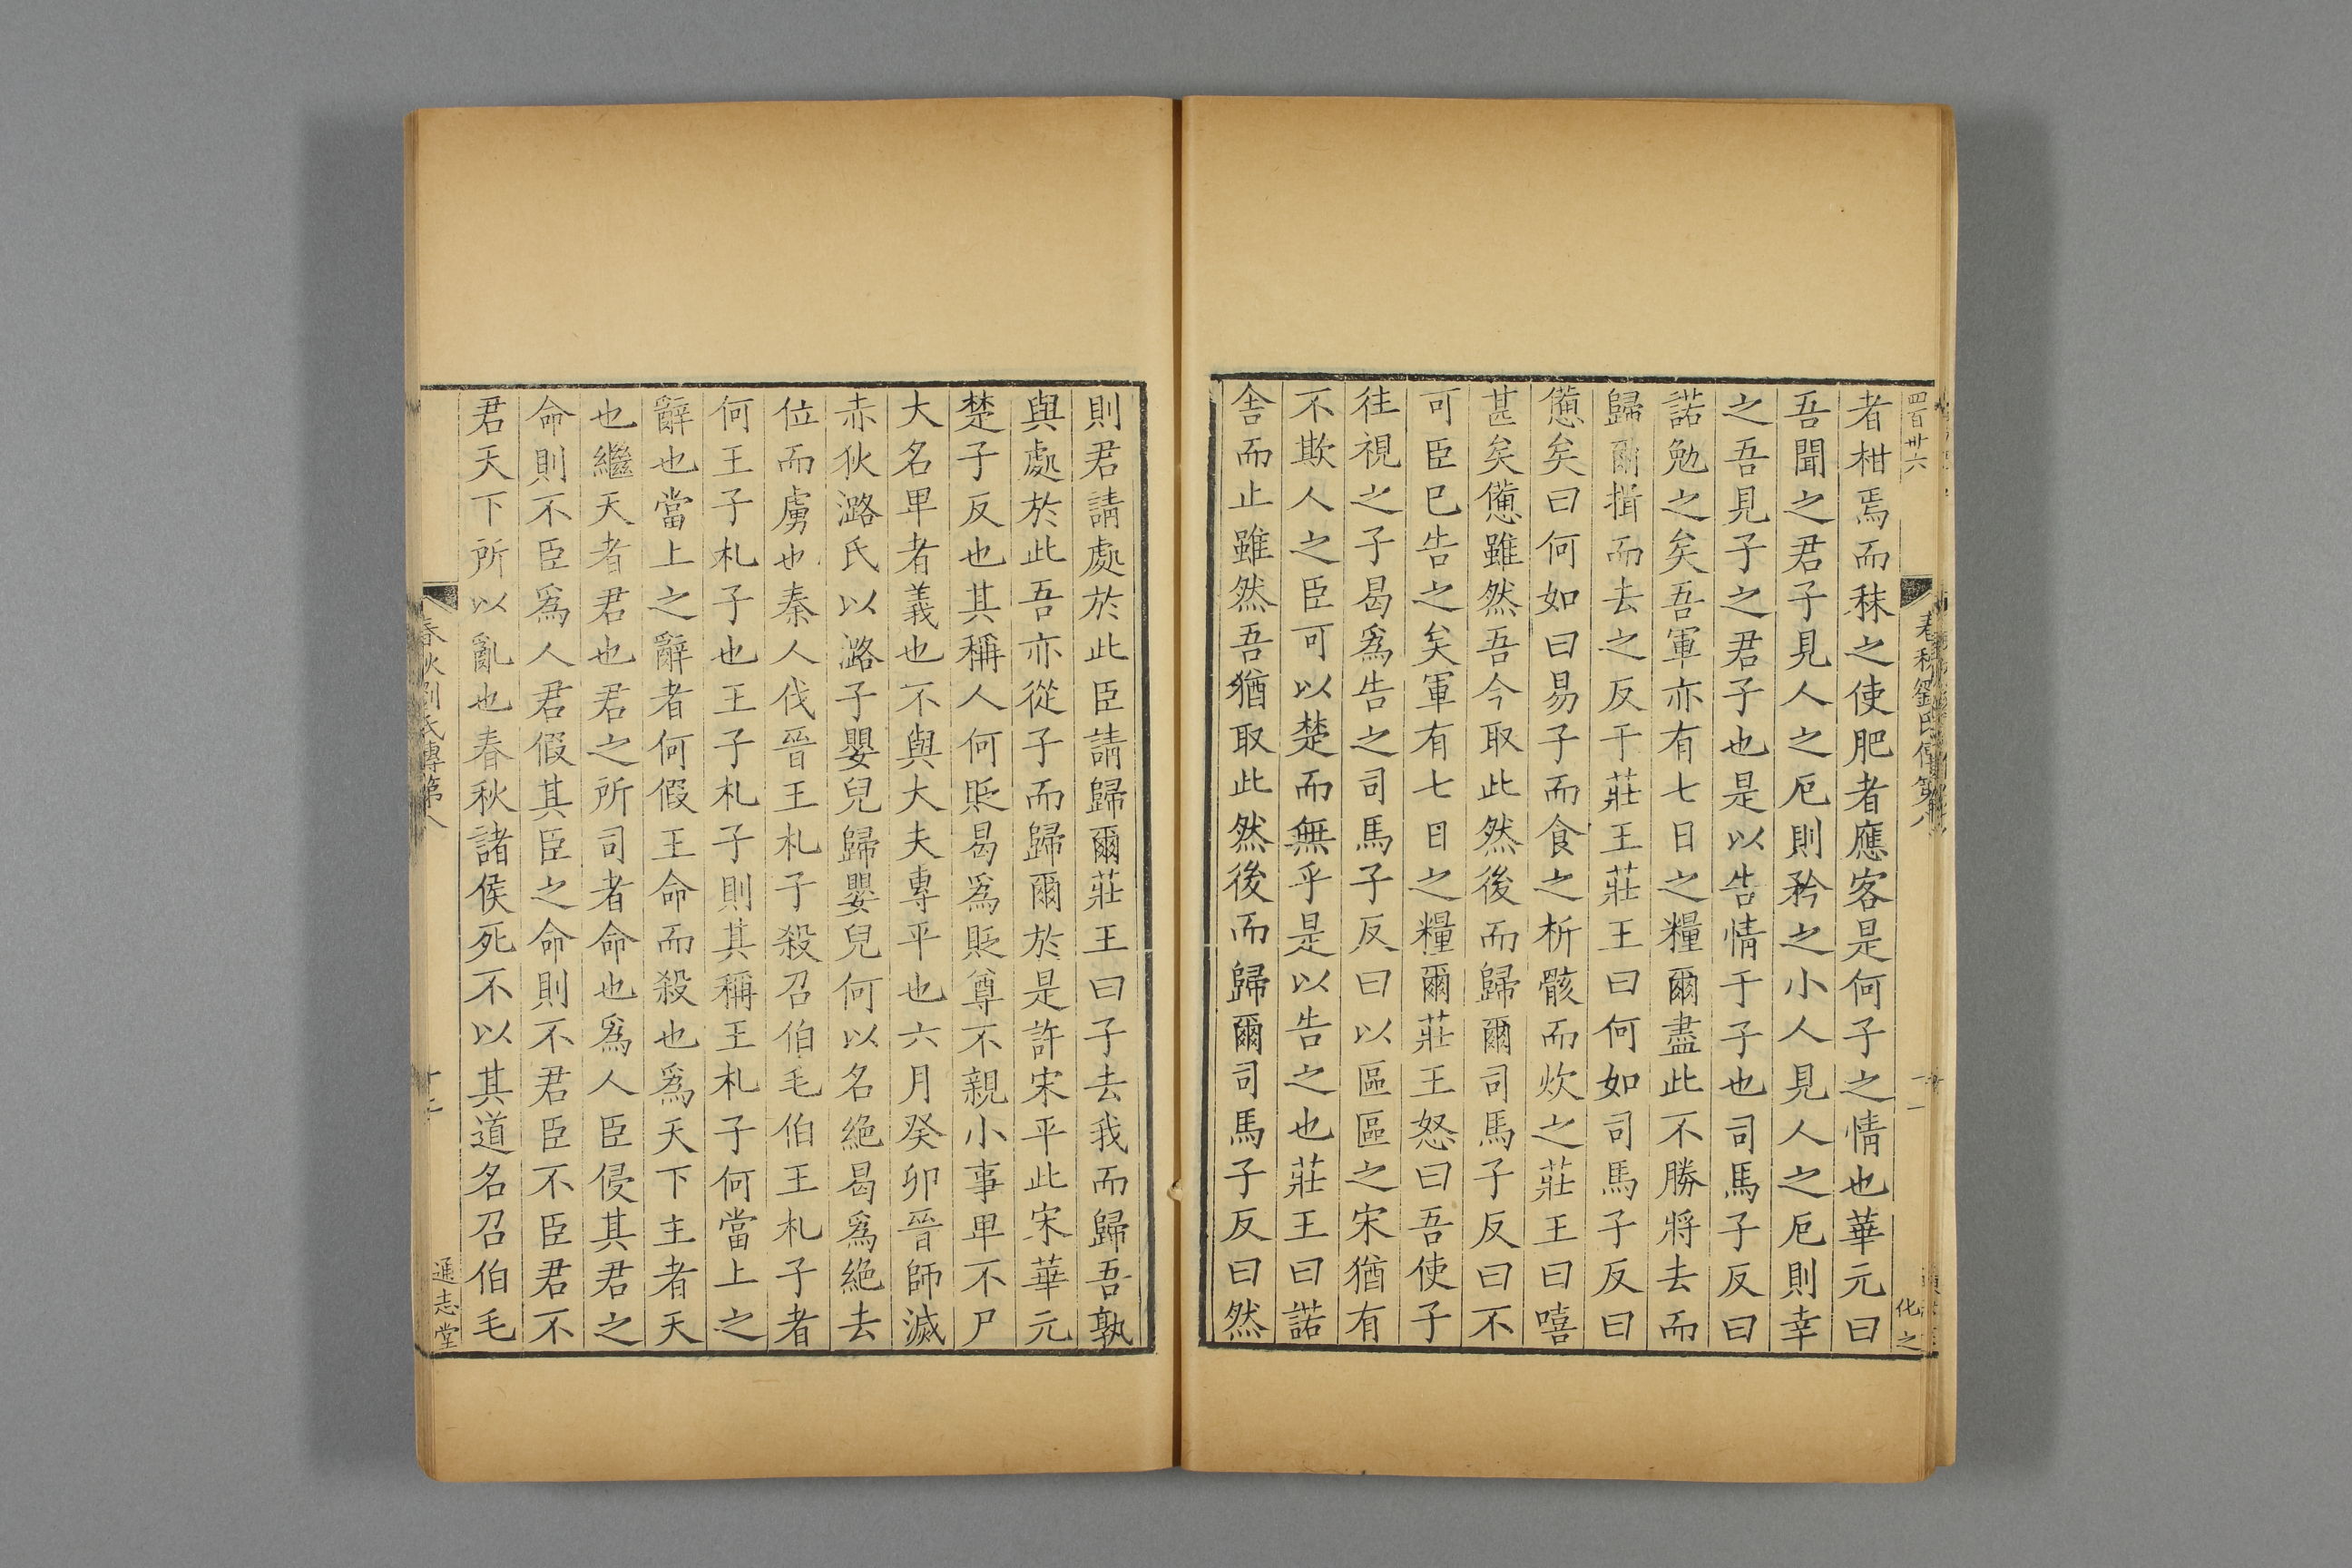 四百卅六
春秋劉氏傳第八
化之
者柑焉而秣之使肥者應客是何子之情也華元曰
吾聞之君子見人之厄則矜之小人見人之厄則幸
之吾見子之君子也是以告情于子也司馬子反曰
諾勉之矣吾軍亦有七日之糧爾盡此不勝將去而
歸爾揖而去之反于莊王莊王曰何如司馬子反曰
憊矣曰何如曰易子而食之析骸而炊之莊王曰嘻
甚矣憊雖然吾今取此然後而歸爾司馬子反曰不
可臣已告之矣軍有七日之糧爾莊王怒曰吾使子
往視之子曷爲告之司馬子反曰以區區之宋猶有
不欺人之臣可以楚而無乎是以告之也莊王曰諾
舍而止雖然吾猶取此然後而歸爾司馬子反曰然
則君請處於此臣請歸爾莊王曰子去我而歸吾孰
與處於此吾亦從子而歸爾於是許宋平此宋華元
楚子反也其稱人何貶曷爲貶尊不親小事卑不尸
大名卑者義也不與大夫專平也六月癸卯晉師滅
赤狄潞氏以潞子嬰兒歸嬰兒何以名絕曷爲絕去
位而虜也秦人伐晉王札子殺召伯毛伯王札子者
何王子札子也王子札子則其稱王札子何當上之
辭也當上之辭者何假王命而殺也爲天下主者天
也繼天者君也君之所司者命也爲人臣侵其君之
命則不臣爲人君假其臣之命則不君臣不臣君不
君天下所以亂也春秋諸侯死不以其道名召伯毛
春秋劉氏傳第八
通志堂